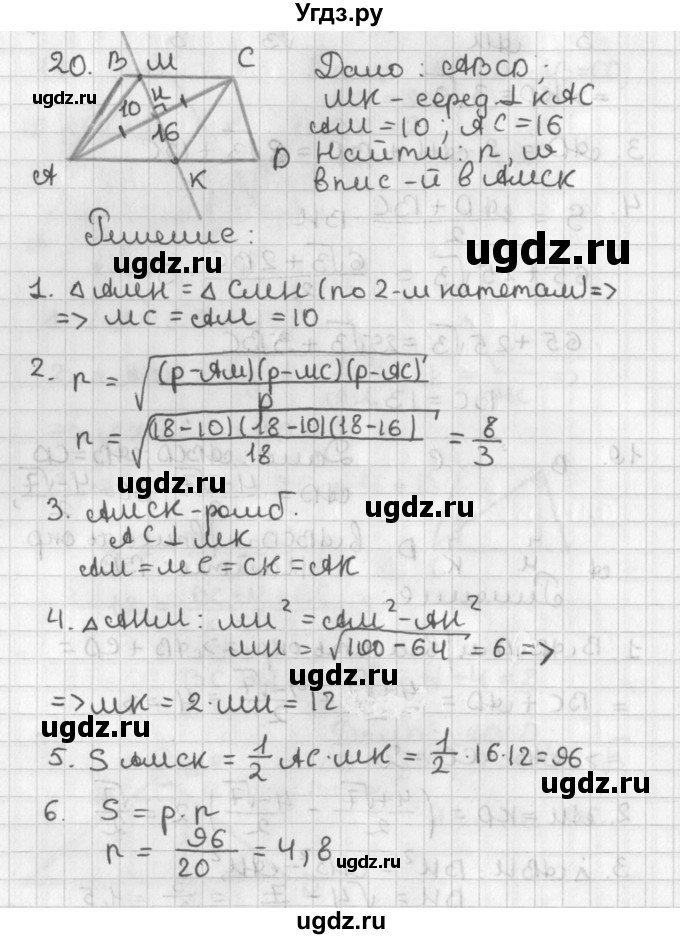 Угдз.ру
20. B M C
H
10
16
A K D
Дано: ABCD;
MK - серед. ⊥ к AC
AM = 10; AC = 16
Найти: r, w
впис-й в AMCK
Решение:
1. △AMH = △CMH (по 2-м катетам) =>
=> MC = AM = 10
2. r = √((p-AM)(p-MC)(p-AC)/p)
r = √((18-10)(18-10)(18-16)/18) = 8/3
3. AMCK - ромб.
AC ⊥ MK
AM = MC = CK = AK
4. △AHM: MH² = AM² - AH²
MH = √(100-64) = 6 =>
=> MK = 2·MH = 12
5. S AMCK = 1/2 AC·MK = 1/2·16·12 = 96
6. S = p·r
r = 96/20 = 4,8
ugdz.ru
ugdz.ru
ugdz.ru
ugdz.ru
ugdz.ru
ugdz.ru
ugdz.ru
ugdz.ru
ugdz.ru
ugdz.ru
ugdz.ru
ugdz.ru